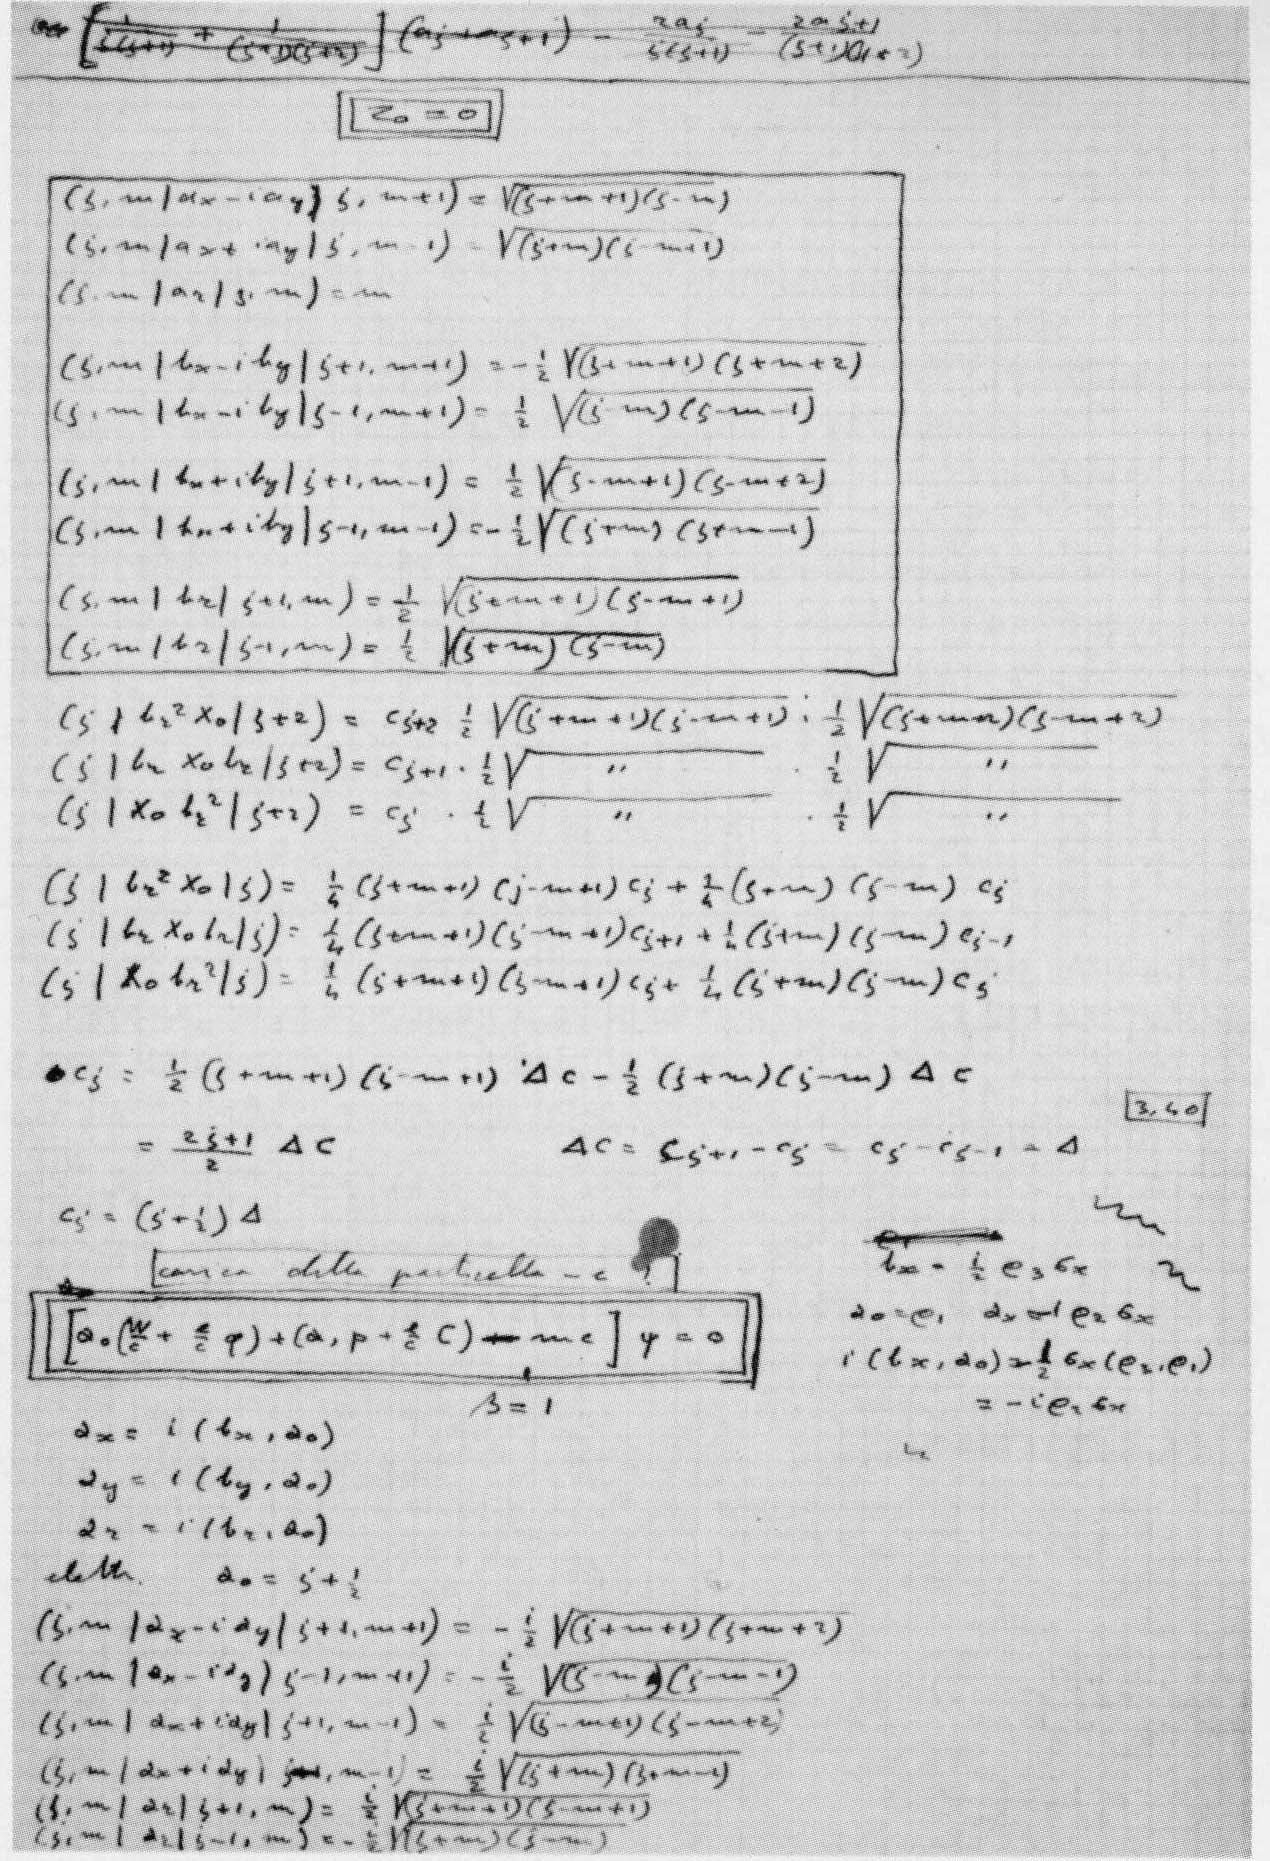 [1/j(j+1) + 1/(j+1)(j+2)] (aj + aj+1) - 2aj/j(j+1) - 2aj+1/(j+1)(j+2)
Z₀ = 0
(j, m | ax - i ay | j, m+1) = √(j+m+1)(j-m)
(j, m | ax + i ay | j, m-1) = √(j+m)(j-m+1)
(j, m | az | j, m) = m
(j, m | bx - i by | j+1, m+1) = -½ √(j+m+1)(j+m+2)
(j, m | bx - i by | j-1, m+1) = ½ √(j-m)(j-m-1)
(j, m | bx + i by | j+1, m-1) = ½ √(j-m+1)(j-m+2)
(j, m | bx + i by | j-1, m-1) = -½ √(j+m)(j+m-1)
(j, m | bz | j+1, m) = ½ √(j+m+1)(j-m+1)
(j, m | bz | j-1, m) = ½ √(j+m)(j-m)
(j | bz² X₀ | j+2) = cj+2 ½ √(j+m+1)(j-m+1) · ½ √(j+m+2)(j-m+2)
(j | bz X₀ bz | j+2) = cj+1 · ½ √ " · ½ √ "
(j | X₀ bz² | j+2) = cj · ½ √ " · ½ √ "
(j | bz² X₀ | j) = ¼ (j+m+1)(j-m+1) cj + ¼ (j+m)(j-m) cj
(j | bz X₀ bz | j) = ¼ (j+m+1)(j-m+1) cj+1 + ¼ (j+m)(j-m) cj-1
(j | X₀ bz² | j) = ¼ (j+m+1)(j-m+1) cj + ¼ (j+m)(j-m) cj
cj = ½ (j+m+1)(j-m+1) Δc - ½ (j+m)(j-m) Δc
3,40
= 2j+1/2 Δc    Δc = cj+1 - cj = cj - cj-1 = Δ
cj = (j+½) Δ
[carica della particella - e !]
bx = ½ ρ₃ σx
α₀ = ρ₁  αx = ρ₂ σx
[α₀ (W/c + e/c φ) + (α, p + e/c C) - mc] ψ = 0
i (bx, α₀) = ½ σx (ρ₃, ρ₁)
= -i ρ₂ σx
β = 1
αx = i (bx, α₀)
αy = i (by, α₀)
αz = i (bz, α₀)
α₀ = j + ½
(j, m | αx - i αy | j+1, m+1) = - i/2 √(j+m+1)(j+m+2)
(j, m | αx - i αy | j-1, m+1) = - i/2 √(j-m)(j-m-1)
(j, m | αx + i αy | j+1, m-1) = i/2 √(j-m+1)(j-m+2)
(j, m | αx + i αy | j-1, m-1) = i/2 √(j+m)(j+m-1)
(j, m | αz | j+1, m) = i/2 √(j+m+1)(j-m+1)
(j, m | αz | j-1, m) = - i/2 √(j+m)(j-m)